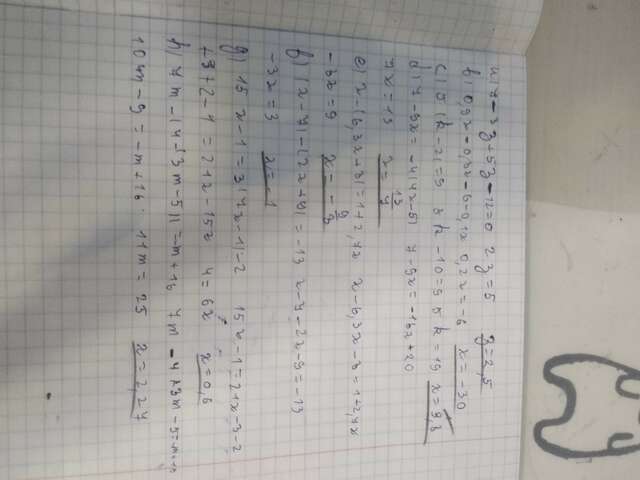 a) 7 - 3y + 5y - 12 = 0 2y = 5 y = 2,5
b) 0,9x - 0,8x - 6 - 0,1x 0,2x = -6 x = -30
c) 5(k - 2) = 9 5k - 10 = 9 5k = 19 x = 3,8
d) 7 - 9x = -4(4x - 5) 7 - 9x = -16x + 20
7x = 13 x = 13/7
e) x - (6,3x + 8) = 1 + 2,4x x - 6,3x - 8 = 1 + 2,4x
-8x = 9 x = - 9/8
f) (x - 7) - (2x + 9) = -13 x - 7 - 2x - 9 = -13
-3x = 3 x = -1
g) 15x - 1 = 3(7x - 1) - 2 15x - 1 = 21x - 3 - 2
+3 + 2 - 1 = 21x - 15x 4 = 6x x = 0,6
h) 7m - (4 - (3m - 5)) = -m + 16 7m - 4 + 3m - 5 = -m + 16
10m - 9 = -m + 16 11m = 25 x = 2,27